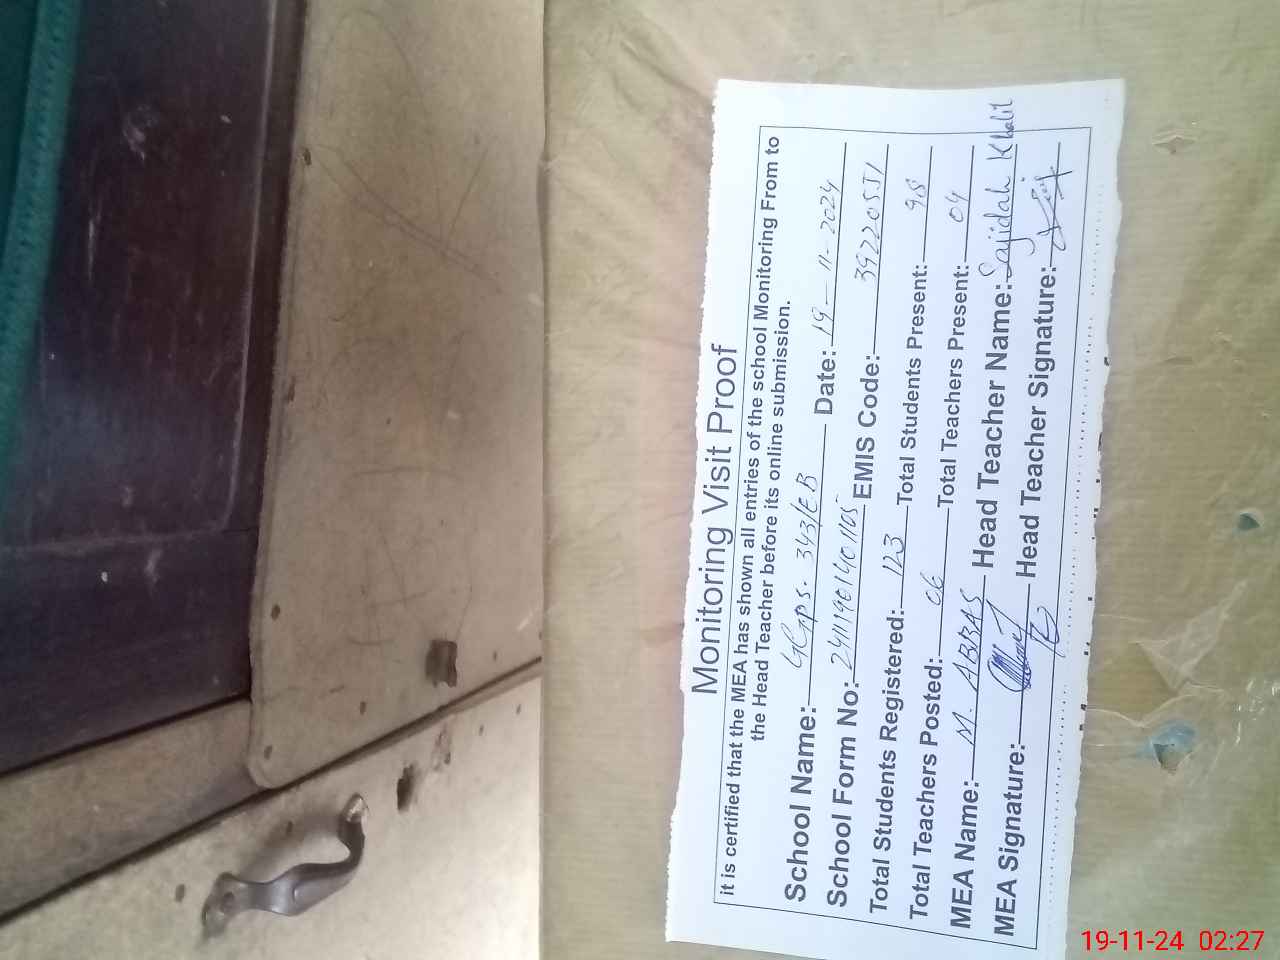 Monitoring Visit Proof
it is certified that the MEA has shown all entries of the school Monitoring From to
the Head Teacher before its online submission.
School Name: GGPS. 343/EB Date: 19-11-2024
School Form No: 24111901401105 EMIS Code: 39220551
Total Students Registered: 123 Total Students Present: 98
Total Teachers Posted: 06 Total Teachers Present: 04
MEA Name: M. ABBAS Head Teacher Name: Sajidah Khalil
MEA Signature: Head Teacher Signature:
19-11-24 02:27